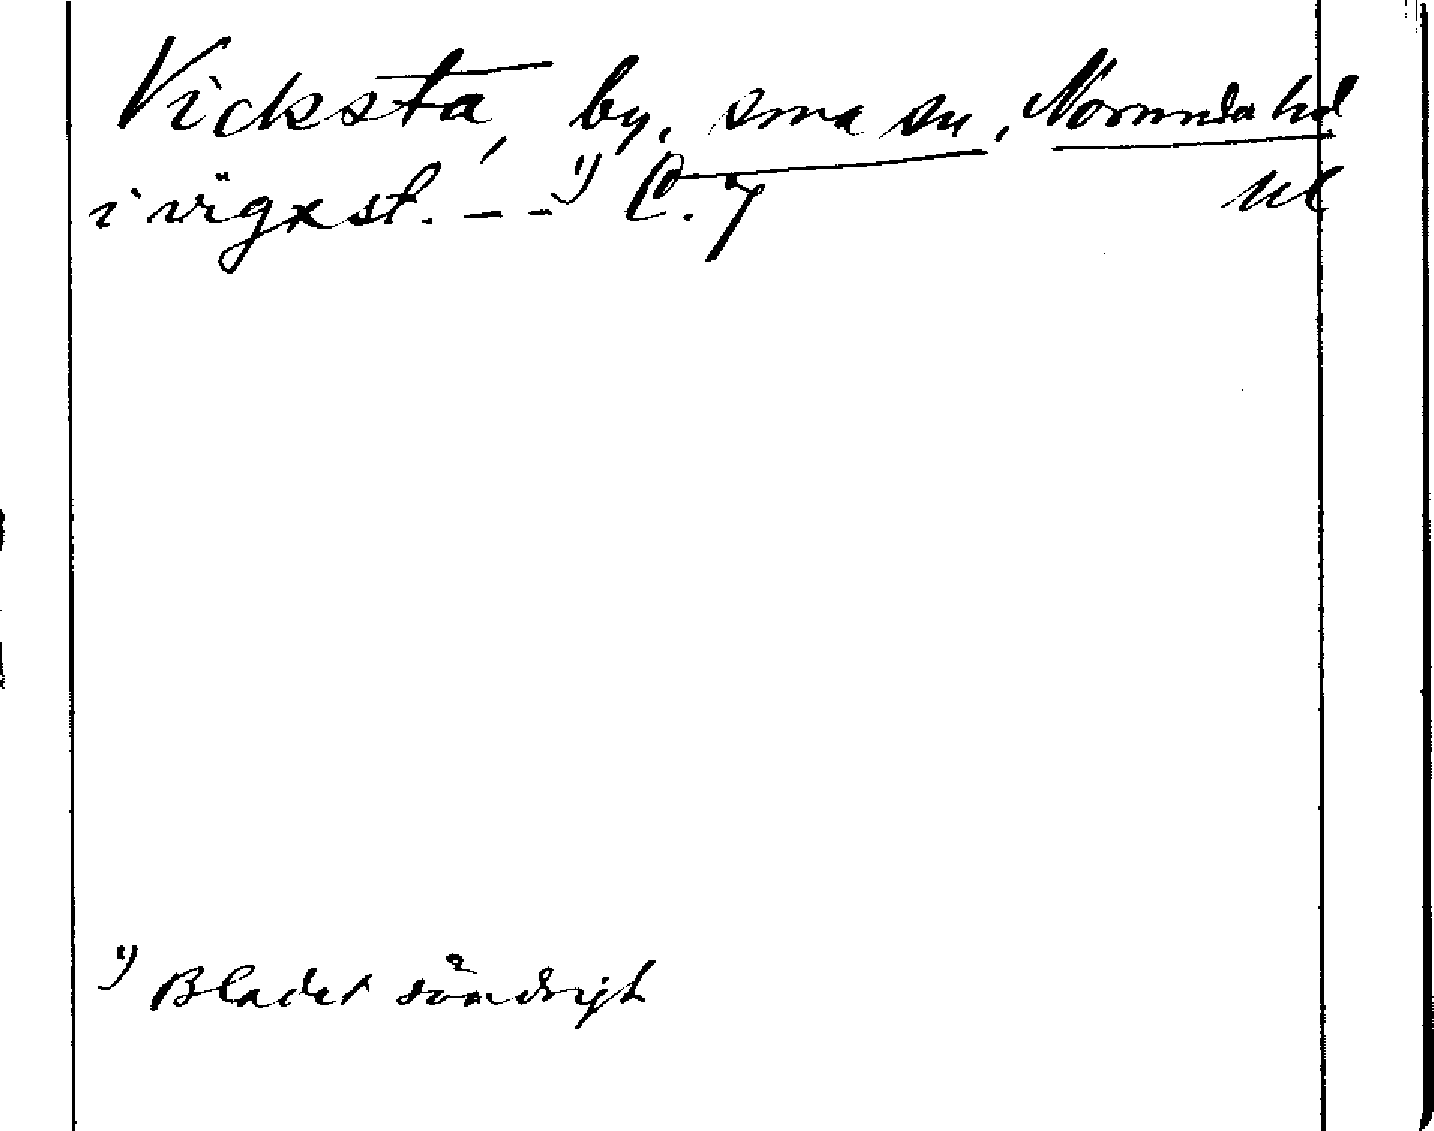 Vicksta, by, sma sn, Norunda hd
i vigxst. - - ¹) C. 7 Ul
¹) Bladet söndrigt